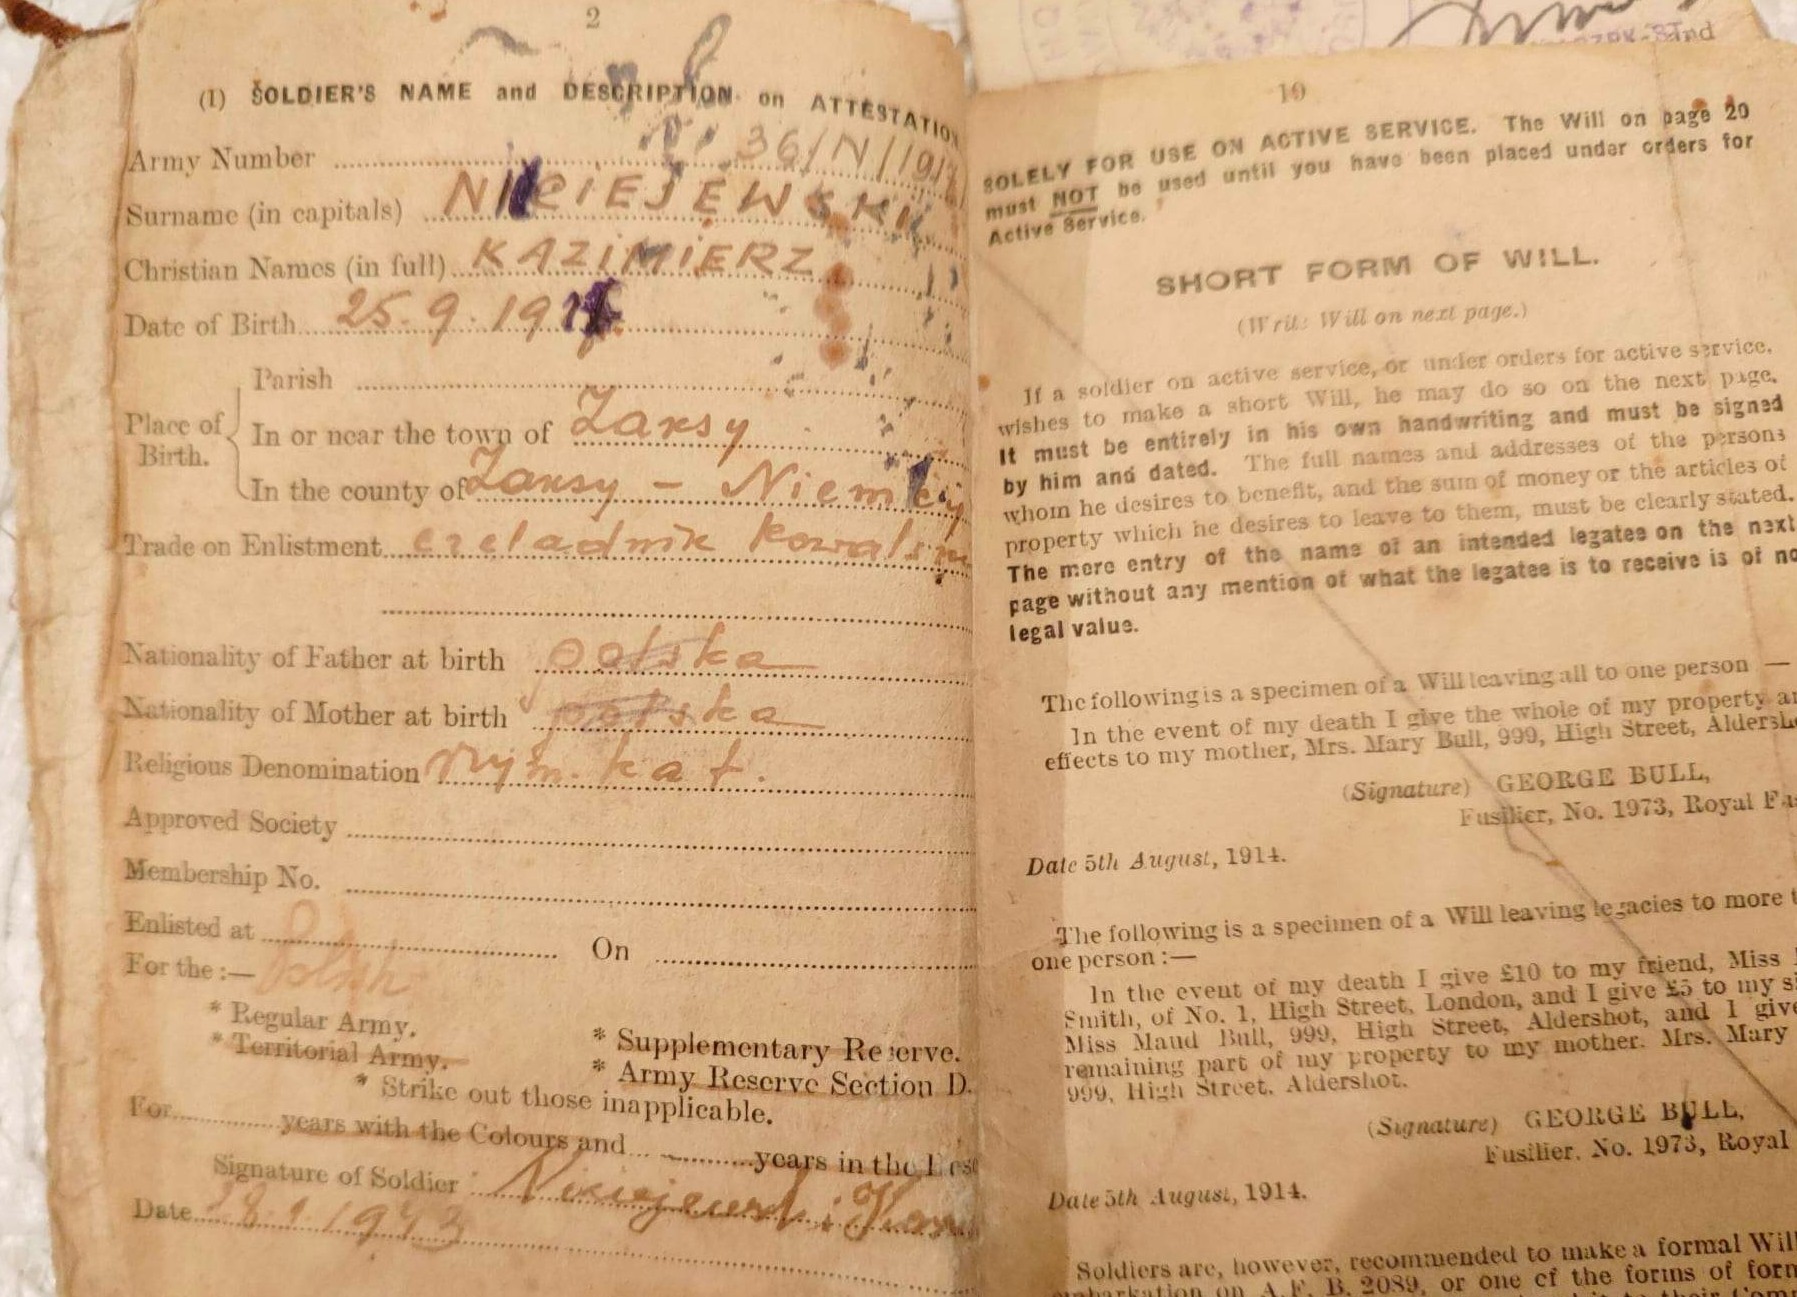 2
(I) SOLDIER'S NAME and DESCRIPTION on ATTESTATION
Army Number 36/N/19
Surname (in capitals) NICIEJEWSKI
Christian Names (in full) KAZIMIERZ
Date of Birth 25.9.19
Parish
Place of Birth.
In or near the town of Zarsy
In the county of Zarsy - Niemcy
Trade on Enlistment czeladnik kowalski
Nationality of Father at birth polska
Nationality of Mother at birth polska
Religious Denomination rzym. kat.
Approved Society
Membership No.
Enlisted at On
For the :— Polish
* Regular Army.
* Territorial Army.
* Supplementary Reserve.
* Army Reserve Section D.
* Strike out those inapplicable.
For years with the Colours and years in the Res
Signature of Soldier Niciejewski Kazi
Date 28.1.1943
19
SOLELY FOR USE ON ACTIVE SERVICE. The Will on page 20
must NOT be used until you have been placed under orders for
Active Service.
SHORT FORM OF WILL.
(Write Will on next page.)
If a soldier on active service, or under orders for active service,
wishes to make a short Will, he may do so on the next page.
It must be entirely in his own handwriting and must be signed
by him and dated. The full names and addresses of the persons
whom he desires to benefit, and the sum of money or the articles of
property which he desires to leave to them, must be clearly stated.
The mere entry of the name of an intended legatee on the next
page without any mention of what the legatee is to receive is of no
legal value.
The following is a specimen of a Will leaving all to one person —
In the event of my death I give the whole of my property an
effects to my mother, Mrs. Mary Bull, 999, High Street, Aldersh
(Signature) GEORGE BULL,
Fusilier, No. 1973, Royal Fu
Date 5th August, 1914.
The following is a specimen of a Will leaving legacies to more t
one person :—
In the event of my death I give £10 to my friend, Miss
Smith, of No. 1, High Street, London, and I give £5 to my s
Miss Maud Bull, 999, High Street, Aldershot, and I give
remaining part of my property to my mother. Mrs. Mary
999, High Street, Aldershot.
(Signature) GEORGE BULL,
Fusilier. No. 1973, Royal
Date 5th August, 1914.
Soldiers are, however, recommended to make a formal Will
embarkation on A.F. B. 2089, or one of the forms of form